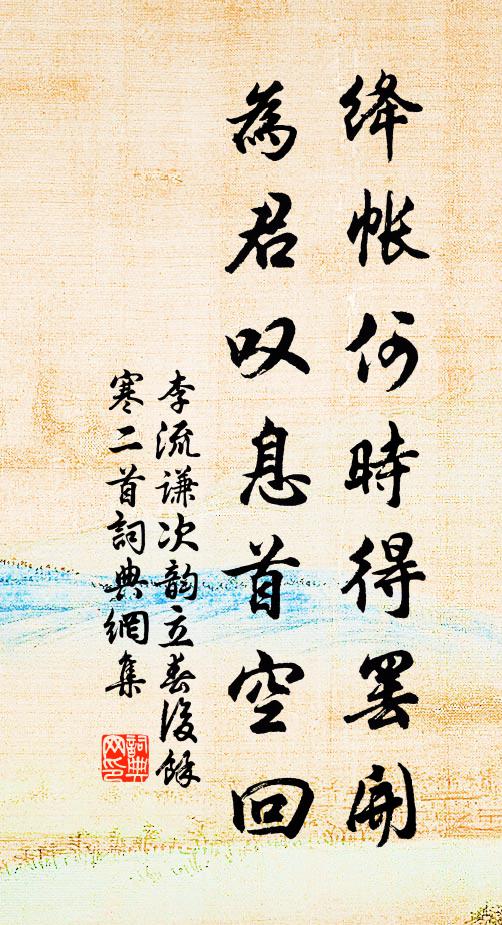 绛帐何時得罢開
為君叹息首空回
李流谦次韵立春後馀
寒二首詞典網集
詞典
网印